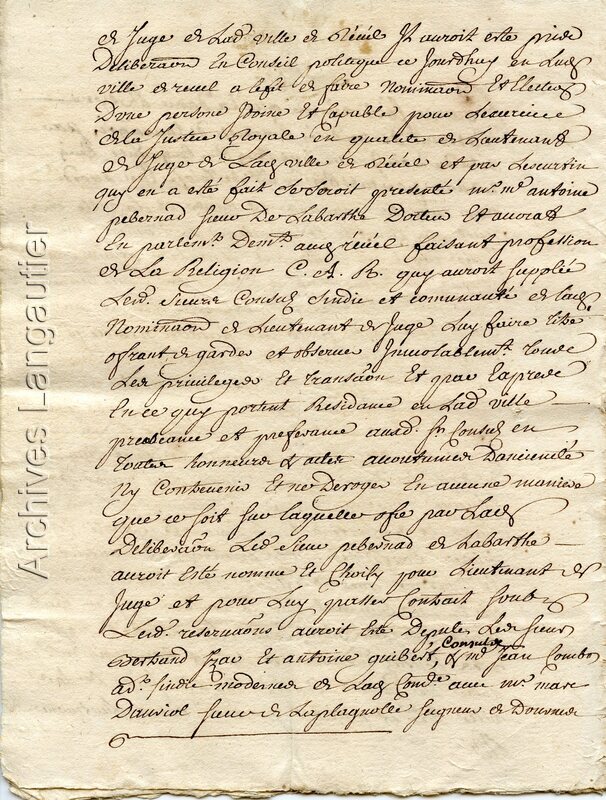 de Juge de Lad. ville de Revel Il auroit esté prinse
Deliberaõn En Conseil politique ce Jourdhuy en Lad.
ville de revel a lefet de faire Nominaõn Et Election
Dune persone Idoine Et Capable pour Lexercice
de la Justice Royale en qualité de Lieutenant
de Juge de Lad. ville de Revel et par Lescrutin
quy en a esté fait Se seroit presenté mr. me antoine
pebernad sieur De Labarthe Docteur Et avocat
En parlemt. Demt. aud. revel faisant profession
de La Religion C. A. R. quy auroit supplié
Lesd. sieurs Consuls sindic et comunauté de lad.
Nominaõn de Lieutenant de Juge Luy faire tiltre
ofrant de garder et observer Inviolablemt. Tous
Les privileges Et transaõn Et
En ce quy portent Residance en Lad. ville
preseance et preferance ausd. srs Consuls en
toutes honneurs & actes acoutumées Dancieneté
Ny Contrevenir Et ne Deroger En aucune maniere
que ce soit sur laquelle ofre par Lad.
Deliberaõn Led. Sieur pebernad de Labarthe
auroit Esté nommé Et Choisy pour Lieutenant de
Juge et pour Luy passer Contrait soubs
Lesd. reservaõns auroit Esté Deputés Les sieurs
Bertrand Izac et antoine guibert, Consuls & me Jean Combes
ad. sindic moderne de Lad. Comté. avec mr. marc
Dauriol sieur de Laplagnolle seigneur de
Archives Langautier